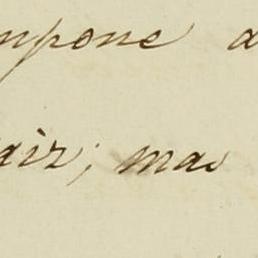 mpone a
air; mas